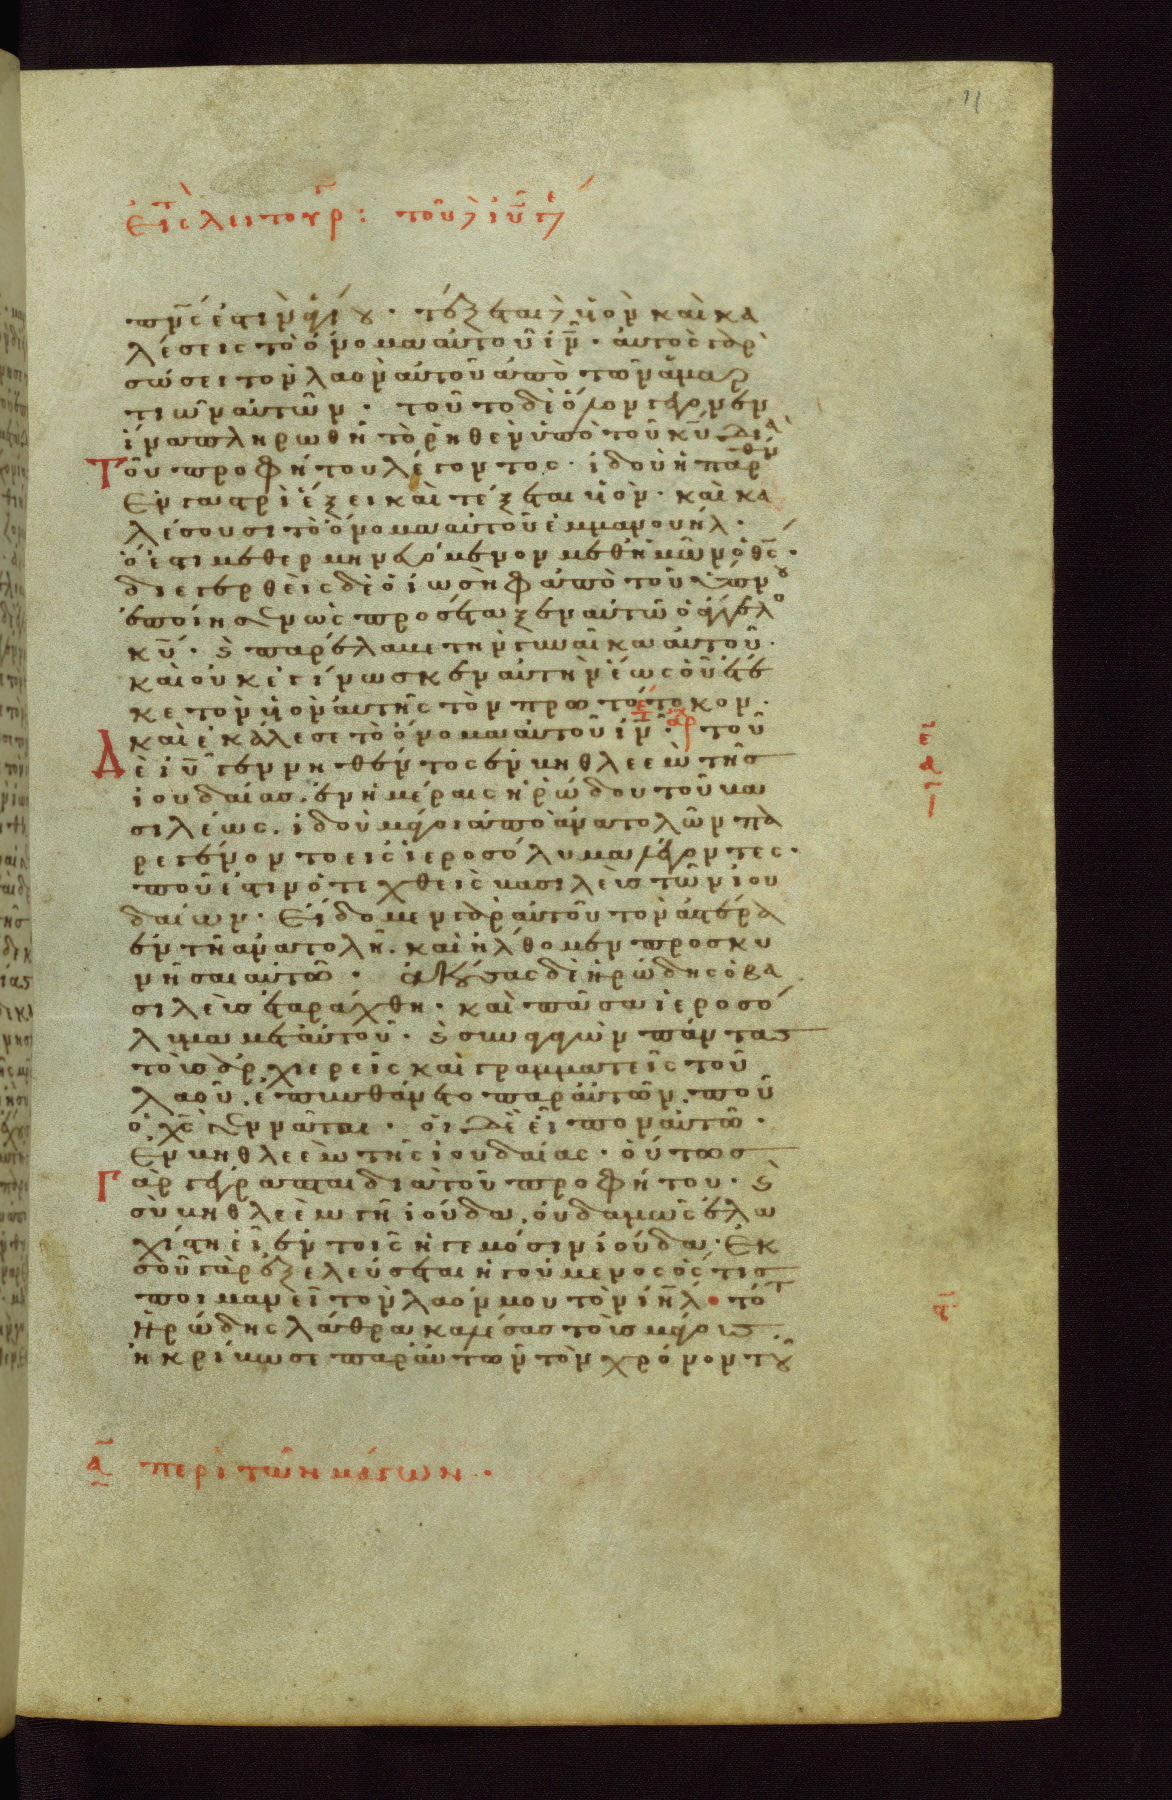 11
εἰς λειτουρ: τοῦ δὲ ἰυ τ
πνς ἐστιν ἁγίου · τέξεται δὲ υἱον καὶ κα
λέσεις το ὄνομα αὐτοῦ ἰν · αὐτος γὰρ
σώσει τον λαον αὐτοῦ ἀπὸ τῶν ἁμαρ
τιῶν αὐτῶν · τοῦτο δὲ ὅλον γέγονεν
ἵνα πληρωθῆ τὸ ῥηθεν ὑπὸ τοῦ κυ δια
Τοῦ προφήτου λέγοντος · ἰδοὺ ἡ παρθεν
Εν γαστρὶ ἕξει και τέξεται υἱόν · καὶ κα
λέσουσι τὸ ὄνομα αὐτοῦ ἐμμανουήλ ·
ὅ ἐστι μεθερμηνευόμενον μεθ ἡμῶν ὁ θς ·
διεγερθεὶς δὲ ὁ ἰωσὴφ ἀπὸ τοῦ ὕπνου
ἐποίησεν ὡς προσέταξεν αὐτῶ ὁ ἄγγελο
κυ · ϗ παρέλαβε την γυναῖκα αὐτοῦ ·
καὶ οὐκ ἐγίνωσκεν αὐτὴν ἕως οὗ ἔτε
κε τον υἱὸν αὐτῆς τὸν πρωτότοκον ·
καὶ ἐκάλεσε τὸ ὄνομα αὐτοῦ ἰν · ἀρ τοῦ
Δὲ ἰυ γεννηθέντος ἐν βηθλεεὼ τῆς
ἰουδαίας · ἐν ἡμέραις ἡρώδου τοῦ βα
σιλέως · ἰδοὺ μάγοι ἀπὸ ἀνατολῶν πα
ρεγένοντο εἰς ἱεροσόλυμα λέγοντες ·
ποῦ ἐστιν ὁ τεχθεὶς βασιλεὺς τῶν ἰου
δαίων · Εἴδομεν γὰρ αὐτοῦ τον ἀστέρα
ἐν τῆ ἀνατολῆ · καὶ ἤλθομεν προσκυ
νῆσαι αὐτῶ · ἀκούσας δὲ ἡρώδης ὁ βα
σιλεὺς ἐταράχθη · καὶ πᾶσα ἱεροσό
λυμα μετ αὐτοῦ · ϗ συναγαγὼν πάντας
τοὺς ἀρχιερεῖς καὶ γραμματεῖς τοῦ
λαοῦ · ἐπυνθάνετο παρ αὐτῶν · ποῦ
ὁ χς γεννᾶται · οἱ δὲ εἶπον αὐτῶ ·
Εν βηθλεεὼ τῆς ἰουδαίας · οὕτως
Γὰρ γέγραπται διὰ τοῦ προφήτου · ϗ
σὺ βηθλεὲμ γῆ ἰούδα · οὐδαμῶς ἐλα
χίστη εἶ ἐν τοῖς ἡγεμόσιν ἰούδα · Εκ
σοῦ γὰρ ἐξελεύσεται ἡγούμενος ὅς τις
ποιμανεῖ τὸν λαόν μου τὸν ιηλ · τότ
Ηρώδης λάθρα καλέσας τοὺς μάγους
ἠκρίβωσε παρ αὐτῶν τὸν χρόνον τοῦ
α περὶ τῶν μάγων ·